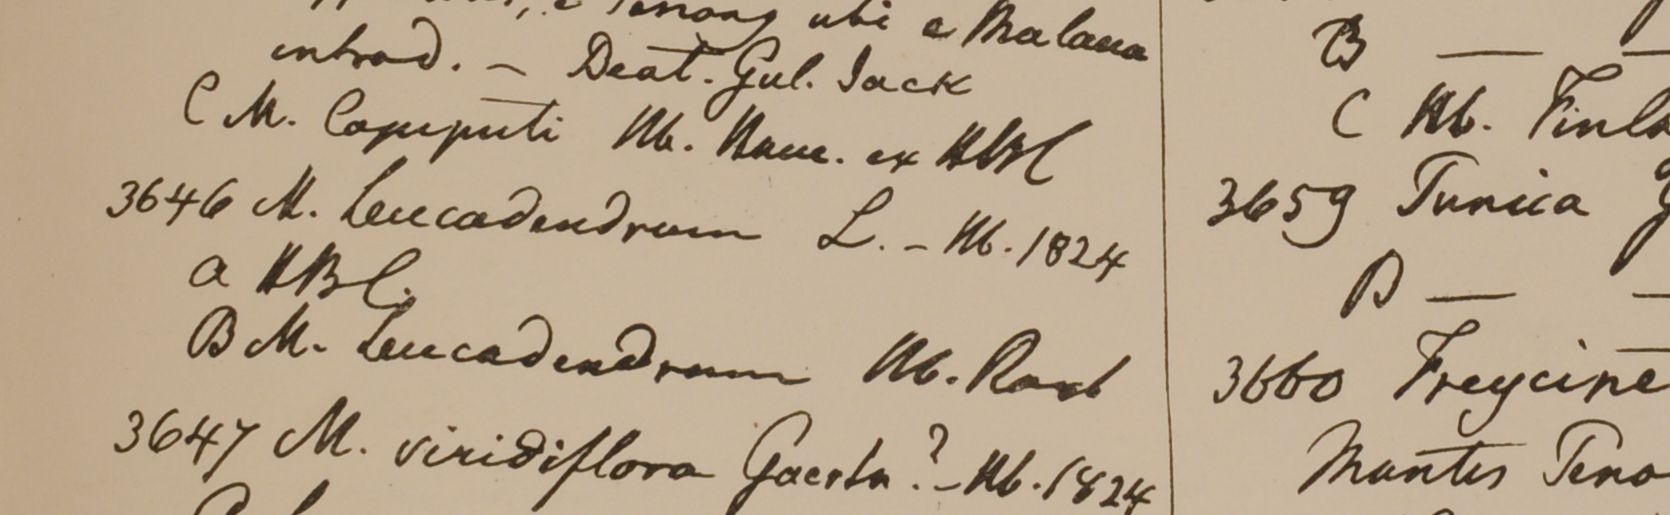 Penang ubi e Malacca
introd. — Deat. Gul. Jack
C M. Cajuputi Hb. Ham. ex HBC
3646 M. Leucadendrum L. – Hb. 1824
a HBC.
B M. Leucadendrum Hb. Roxb
3647 M. viridiflora Gaertn? – Hb. 1824
B — —
C Hb. Finla
3659 Tunica G
B — —
3660 Freycine
Montes Pena